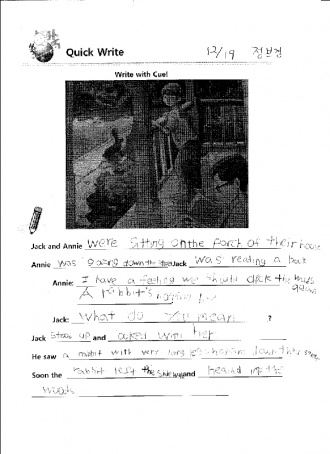 Quick Write 12/19 정보경
Write with Cue!
Jack and Annie were sitting on the porch of their house
Annie was going down the Jack was reading a book
Annie: I have a feeling we should check the
A rabbit's
Jack: What do you mean ?
Jack stood up and with her
He saw a rabbit with very long down the
Soon the rabbit left the and the
woods